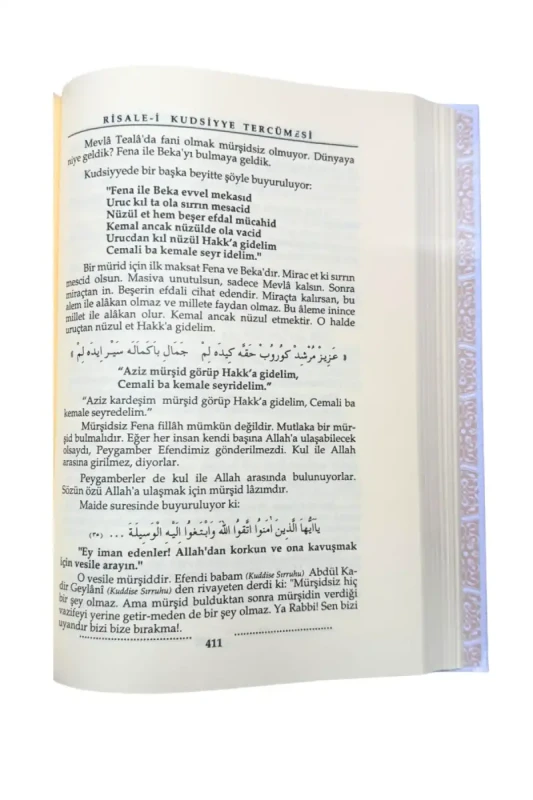 RİSALE-İ KUDSİYYE TERCÜMESİ
Mevlâ Tealâ'da fani olmak mürşidsiz olmuyor. Dünyaya
niye geldik? Fena ile Beka'yı bulmaya geldik.
Kudsiyyede bir başka beyitte şöyle buyuruluyor:
"Fena ile Beka evvel mekasıd
Uruc kıl ta ola sırrın mesacid
Nüzül et hem beşer efdal mücahid
Kemal ancak nüzülde ola vacid
Urucdan kıl nüzul Hakk'a gidelim
Cemali ba kemale seyr idelim."
Bir mürid için ilk maksat Fena ve Beka'dır. Mirac et ki sırrın
mescid olsun. Masiva unutulsun, sadece Mevlâ kalsın. Sonra
miraçtan in. Beşerin efdali cihat edendir. Miraçta kalırsan, bu
alem ile alâkan olmaz ve millete faydan olmaz. Bu âleme inince
millet ile alâkan olur. Kemal ancak nüzul etmektir. O halde
uruçtan nüzul et Hakk'a gidelim.
« عَزِيزْ مُرْشِدْ كُورُوبْ حَقَّه كِيدَه لِمْ جَمَالِ بَا كَمَالَه سَيْرْ اِيدَه لِمْ »
"Aziz mürşid görüp Hakk'a gidelim,
Cemali ba kemale seyridelim."
"Aziz kardeşim mürşid görüp Hakk'a gidelim, Cemali ba
kemale seyredelim."
Mürşidsiz Fena fillâh mümkün değildir. Mutlaka bir mür-
şid bulmalıdır. Eğer her insan kendi başına Allah'a ulaşabilecek
olsaydı, Peygamber Efendimiz gönderilmezdi. Kul ile Allah
arasına girilmez, diyorlar.
Peygamberler de kul ile Allah arasında bulunuyorlar.
Sözün özü Allah'a ulaşmak için mürşid lâzımdır.
Maide suresinde buyuruluyor ki:
يَآاَيُّهَا الَّذِينَ اٰمَنُوا اتَّقُوا اللّٰهَ وَابْتَغُوا اِلَيْهِ الْوَسِيلَةَ ... (٣٥)
"Ey iman edenler! Allah'dan korkun ve ona kavuşmak
için vesile arayın."
O vesile mürşiddir. Efendi babam (Kuddise Sırruhu) Abdül Ka-
dir Geylânî (Kuddise Sırruhu) den rivayeten derdi ki: "Mürşidsiz hiç
bir şey olmaz. Ama mürşid bulduktan sonra mürşidin verdiği
vazifeyi yerine getir-meden de bir şey olmaz. Ya Rabbi! Sen bizi
uyandır bizi bize bırakma!.
411